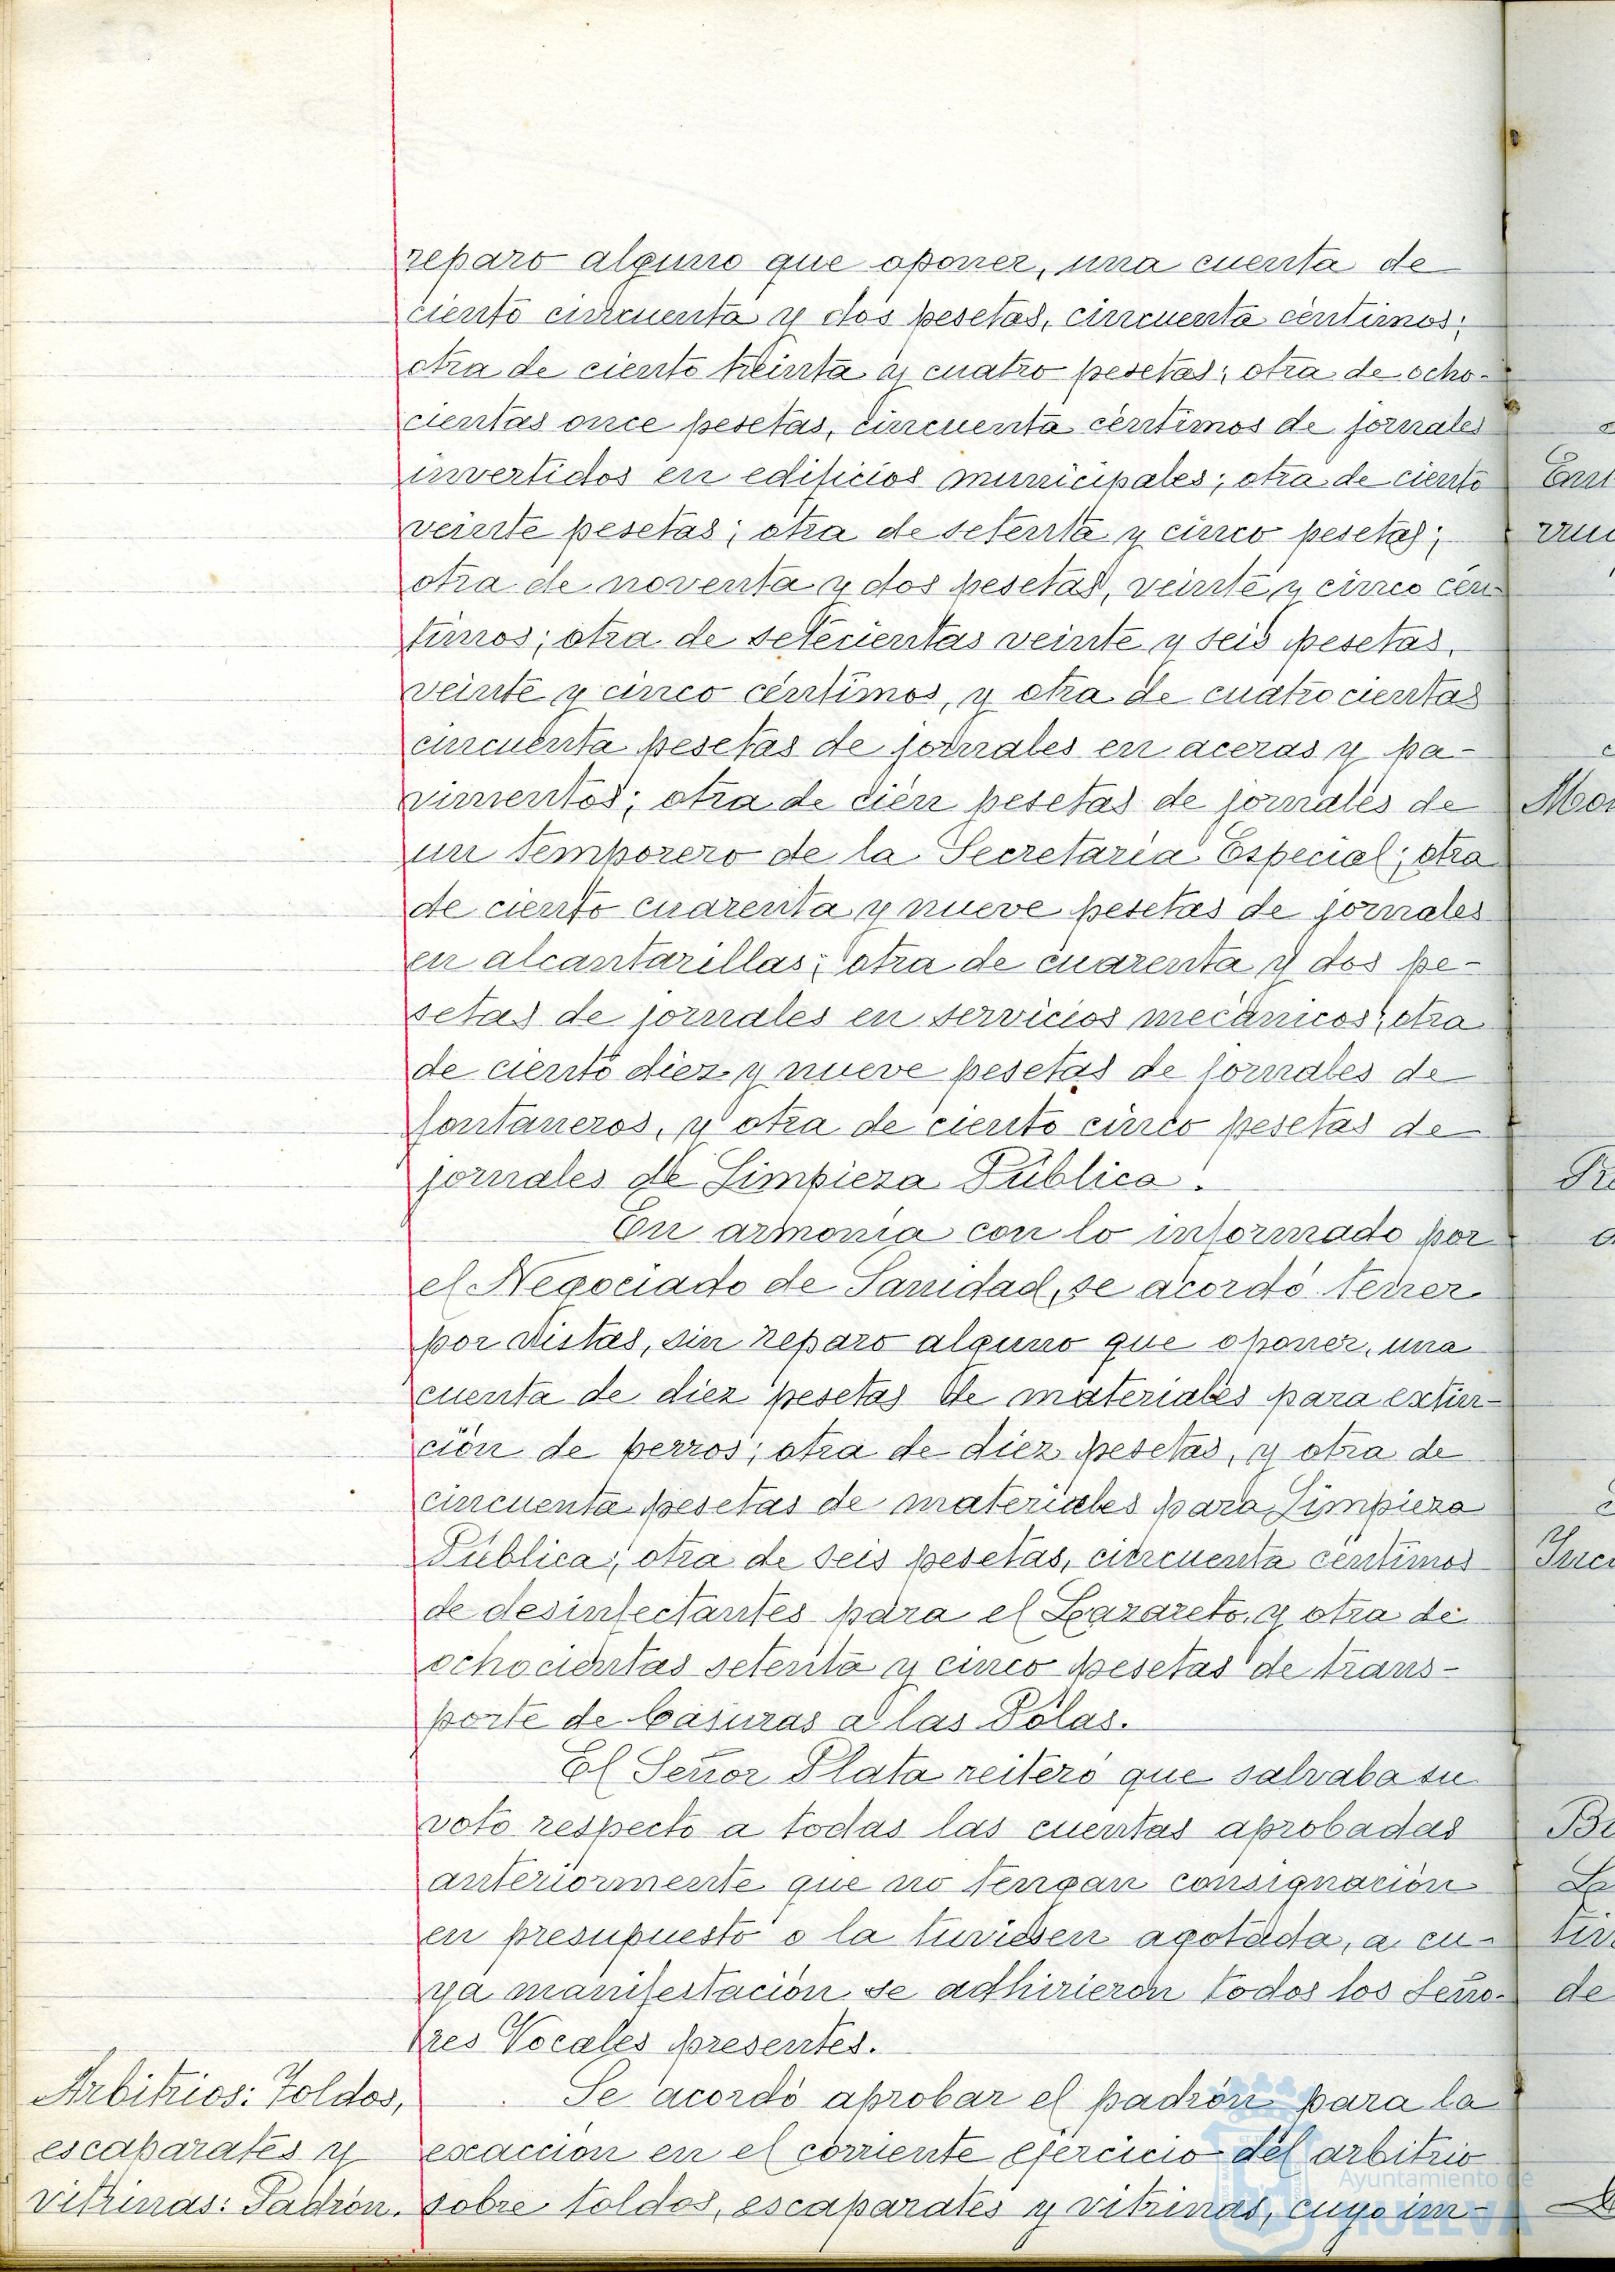 reparo alguno que oponer, una cuenta de
ciento cincuenta y dos pesetas, cincuenta céntimos;
otra de ciento treinta y cuatro pesetas; otra de ocho-
cientas once pesetas, cincuenta céntimos de jornales
invertidos en edificios municipales; otra de ciento
veinte pesetas; otra de setenta y cinco pesetas;
otra de noventa y dos pesetas, veinte y cinco cén
timos; otra de setecientas veinte y seis pesetas,
veinte y cinco céntimos, y otra de cuatrocientas
cincuenta pesetas de jornales en aceras y pa-
vimentos; otra de cien pesetas de jornales de
un temporero de la Secretaría Especial; otra
de ciento cuarenta y nueve pesetas de jornales
en alcantarillas; otra de cuarenta y dos pe-
setas de jornales en servicios mecánicos; otra
de ciento diez y nueve pesetas de jornales de
fontaneros, y otra de ciento cinco pesetas de
jornales de Limpieza Pública.
En armonía con lo informado por
el Negociado de Sanidad, se acordó tener
por vistas, sin reparo alguno que oponer, una
cuenta de diez pesetas de materiales para extin-
ción de perros; otra de diez pesetas, y otra de
cincuenta pesetas de materiales para Limpieza
Pública; otra de seis pesetas, cincuenta céntimos
de desinfectantes para el Lazareto, y otra de
ochocientas setenta y cinco pesetas de trans-
porte de basuras a las Polas.
El Señor Plata reiteró que salvaba su
voto respecto a todas las cuentas aprobadas
anteriormente que no tengan consignación
en presupuesto o la tuviesen agotada, a cu-
ya manifestación se adhirieron todos los Seño-
res Vocales presentes.
Arbitrios: Toldos,
escaparates y
vitrinas: Padrón.
Se acordó aprobar el padrón para la
exacción en el corriente ejercicio del arbitrio
sobre toldos, escaparates y vitrinas, cuyo im-
Ayuntamiento de
HUELVA